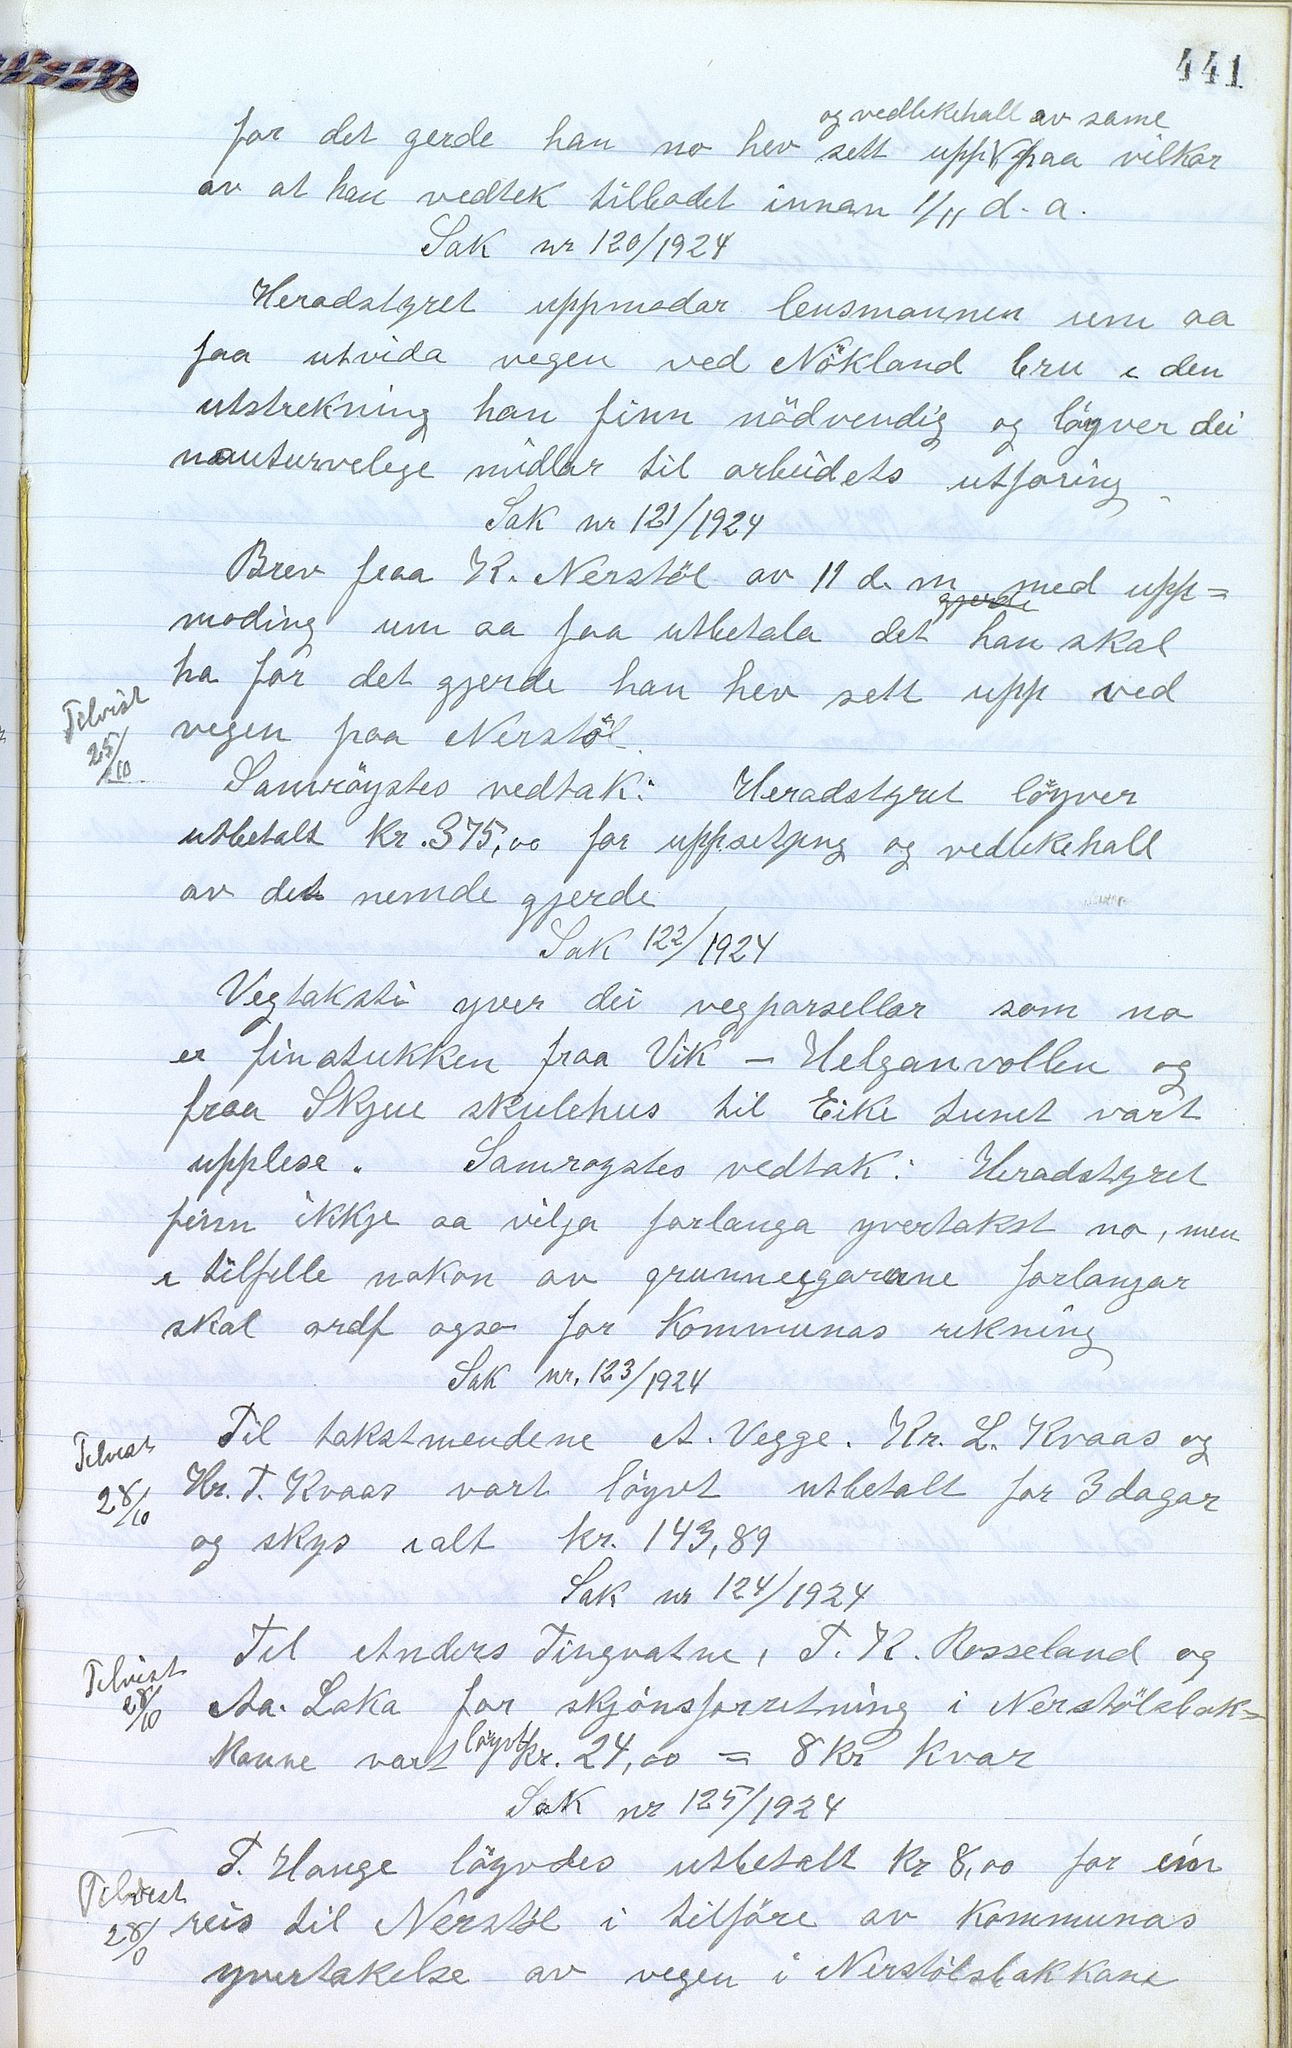 441
og vedlikehall av same
for det gerde han no hev sett upp paa vilkor
av at han vedtek tilbodet innan 1/11 d. a.
Sak nr 120/1924
Heradstyret uppmodar lensmannen um aa
faa utvida vegen ved Nökland bru i den
utstrekning han finn nödvendig og löyver dei
nauturvelege midlar til arbeidets utföring
Sak nr 121/1924
Brev fraa K. Nerstöl av 11 d. m med upp=
moding um aa faa utbetala det han skal
ha for det gjerde han hev sett upp ved
Tilvist
25/10
vegen paa Nerstöl.
Samröystes vedtak: Heradstyret löyver
utbetalt kr. 375,00 for uppsetjing og vedlikehall
av det nemde gjerde
Sak 122/1924
Vegtaksti yver dei vegparsellar som no
er finstukken fraa Vik – Helganvollen og
fraa Skjeie skulehus til Eike tunet vart
upplese. Samroystes vedtak: Heradstyret
finn ikkje aa vilja forlanga yvertakst no, men
i tilfelle nokon av grunneigararne forlangar
skal ordf ogso for kommunas rekning
Sak nr. 123/1924
Til takstmendene A. Vegge. Kr. L. Kvaas og
Tilvist
28/10
Kr. T. Kvaas vart löyvt utbetalt for 3 dagar
og skys ialt kr. 143,89
Sak nr 124/1924
Til Anders Tingvatne, T. K. Rosseland og
Tilvist
28/10
Aa. Laka for skjönsforretning i Nerstölsbak=
kanne vart löyvt kr. 24,00 = 8 kr kvar
Sak nr 125/1924
T. Hauge löyvdes utbetalt kr 8,00 for ein
Tilvist
28/10
reis til Nerstöl i tilföre av kommunas
yvertakelse av vegen i Nerstölsbakkane